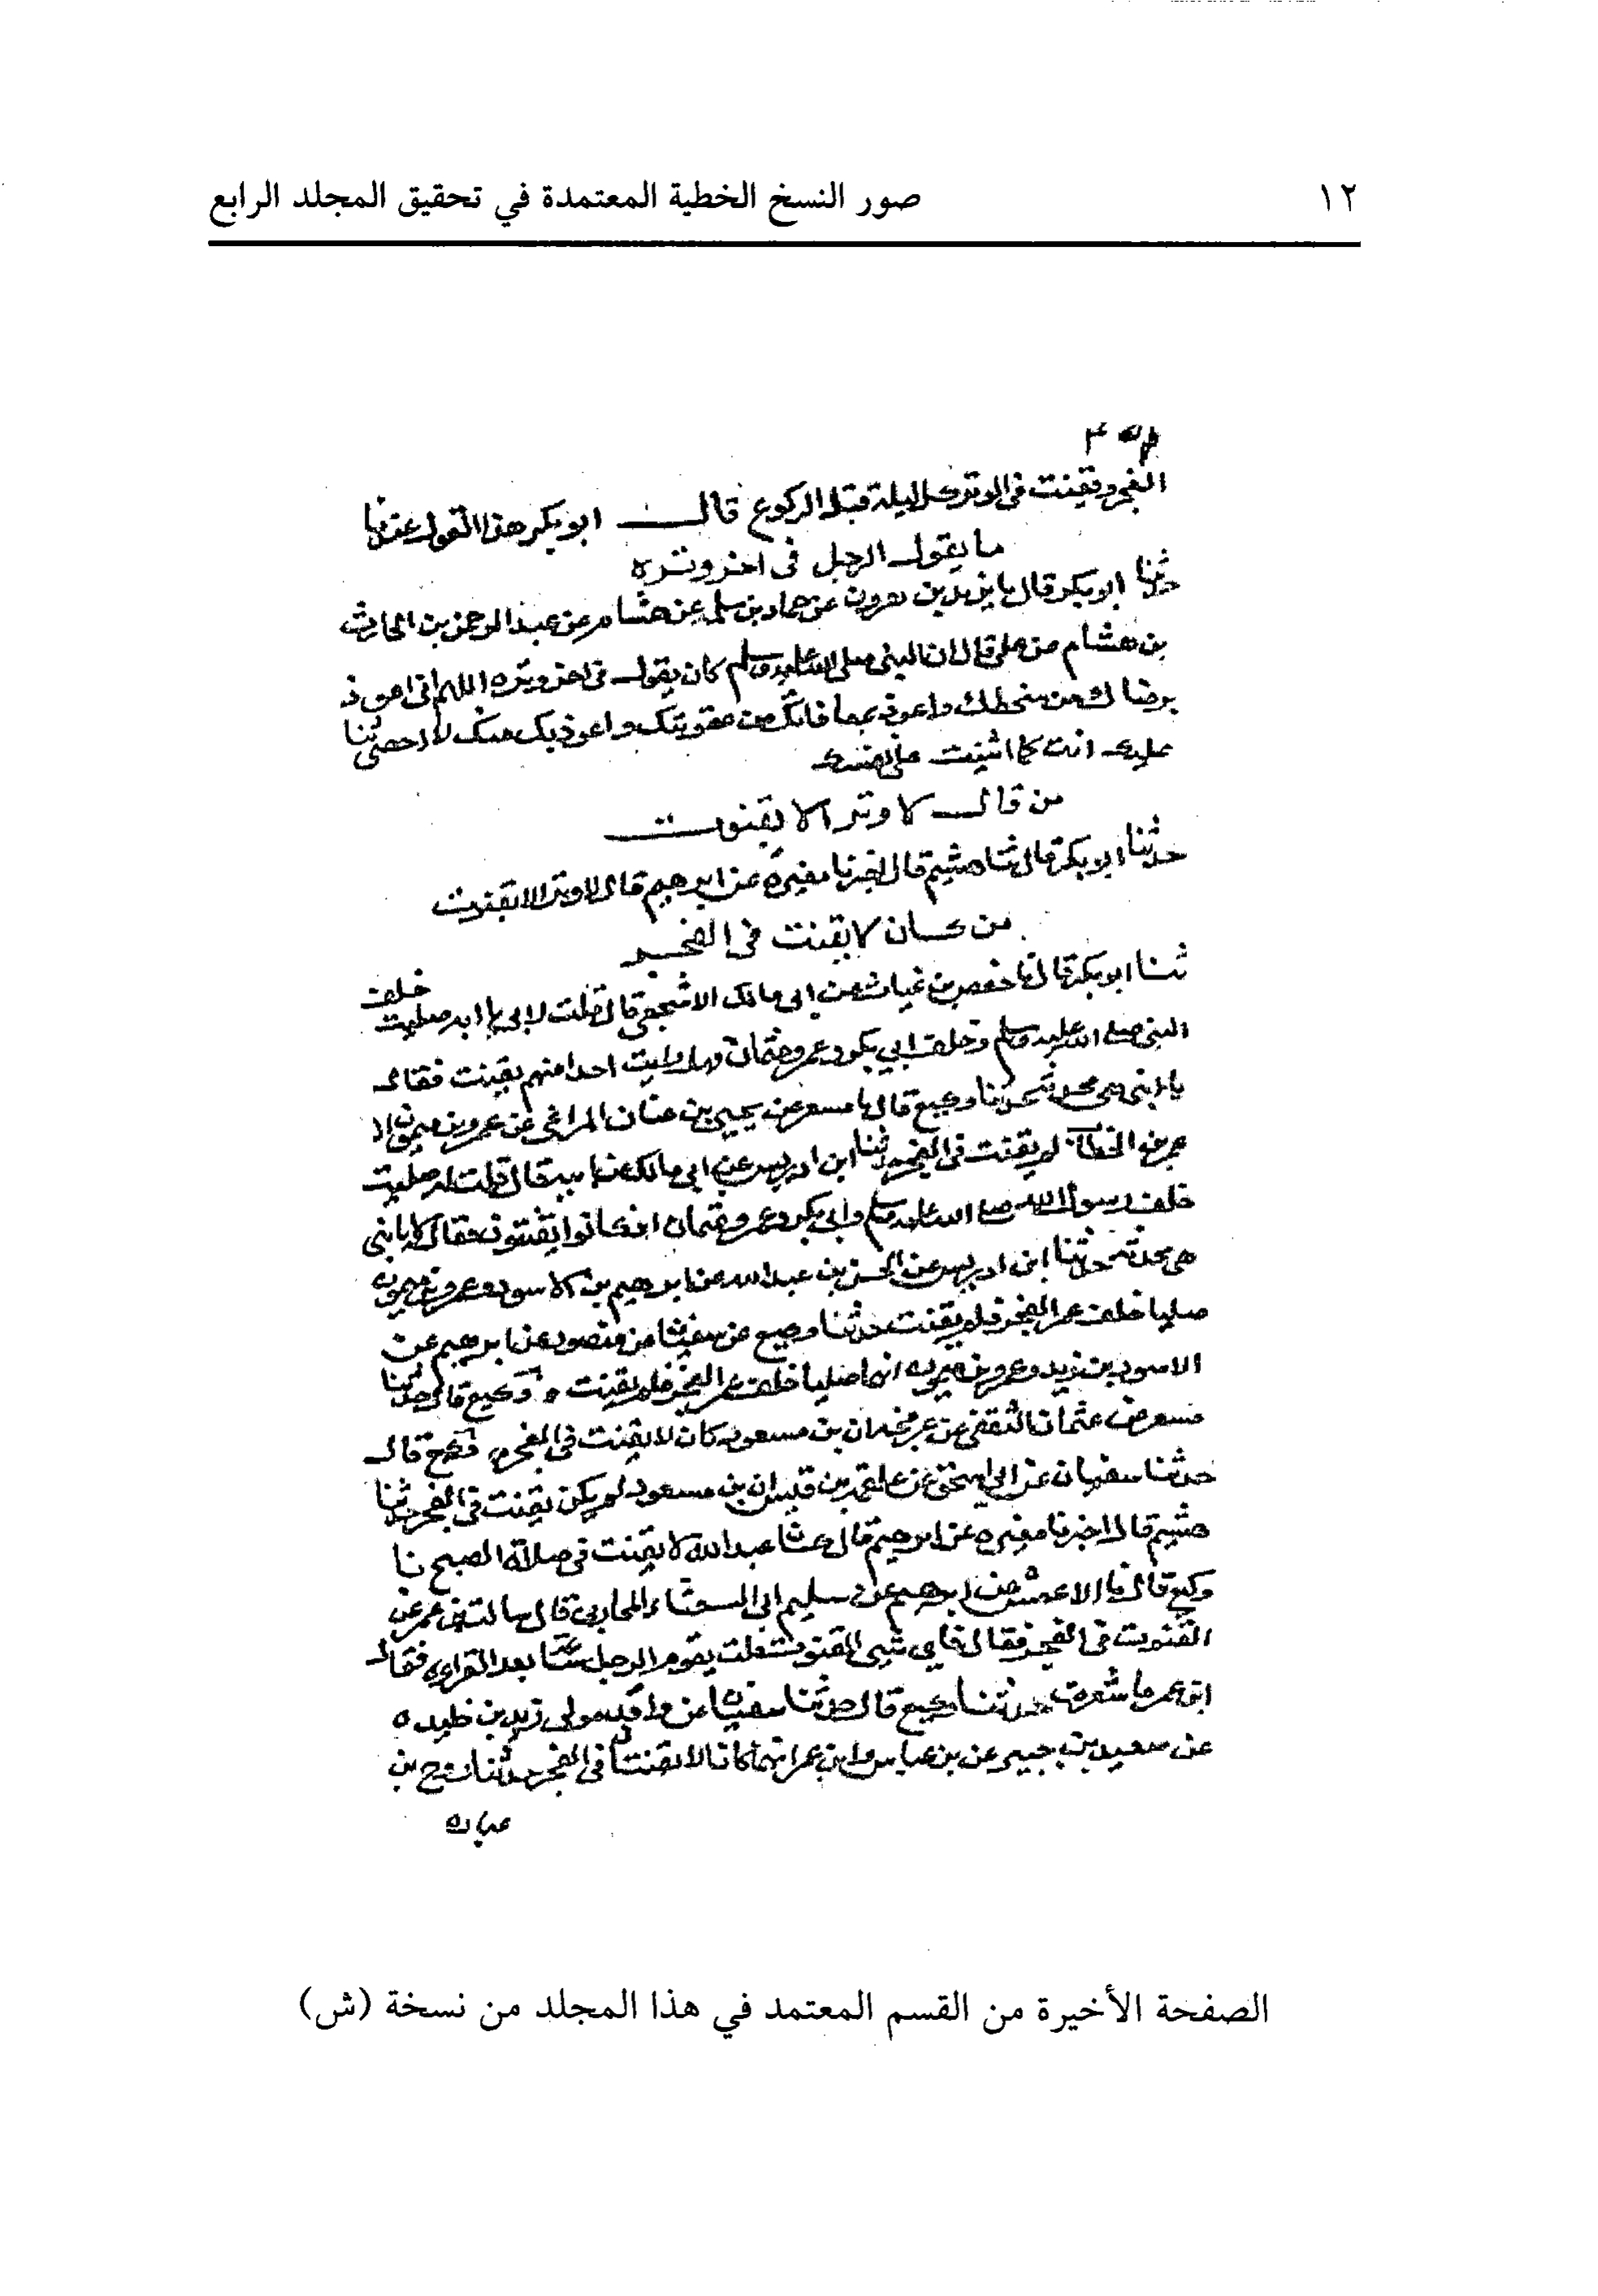 ١٢
صور النسخ الخطية المعتمدة في تحقيق المجلد الرابع
الفجر ويقنت في الوتر كل ليلة قبل الركوع قال ابو بكر هذا القول عندنا
ما يقول الرجل في اخر وتره
حدثنا ابو بكر قال نا يزيد بن هرون عن حماد بن سلمه عن هشام عن عبد الرحمن بن الحارث
بن هشام عن علي قال ان النبي صلى الله عليه وسلم كان يقول في اخر وتره اللهم اني اعوذ
برضاك من سخطك واعوذ بمعافاتك من عقوبتك واعوذ بك منك لا احصي ثنا
عليك انت كما اثنيت على نفسك
من قال لا وتر الا بقنوت
حدثنا ابو بكر قال ثنا هشيم قال اخبرنا مغيره عن ابرهيم قال لا وتر الا بقنوت
من كان لا يقنت في الفجر
ثنا ابو بكر قال نا حفص بن غياث عن ابي مالك الاشجعي قال قلت لابي يا ابه صليت خلف
النبي صلى الله عليه وسلم وخلف ابي بكر وعمر وعثمان فهل رايت احدا منهم يقنت فقال
يا بني هي محدثة حدثنا وكيع قال نا مسعر عن يحيى بن غسان المرادي عن عمرو بن ميمون ان
عمر بن الخطاب لم يقنت في الفجر حدثنا ابن ادريس عن ابي مالك عن ابيه قال قلت له صليت
خلف رسول الله صلى الله عليه وسلم وابي بكر وعمر وعثمان افكانوا يقنتون فقال لا يا بني
هي محدثة حدثنا ابن ادريس عن الحسن بن عبد الله عن ابرهيم بن الاسود وعمرو بن ميمون
صليا خلف عمر الفجر فلم يقنت حدثنا وكيع عن سفين عن منصور عن ابرهيم عن
الاسود بن يزيد وعمرو بن ميمون انهما صليا خلف عمر الفجر فلم يقنت وكيع قال حدثنا
مسعر عن عثمان الثقفي عن عرفجه ان بن مسعود كان لا يقنت في الفجر وكيع قال
حدثنا سفيان عن ابي اسحق عن علقمه بن قيس ان بن مسعود لم يكن يقنت في الفجر حدثنا
هشيم قال اخبرنا مغيره عن ابرهيم قال عبد الله لا يقنت في صلاة الصبح نا
وكيع قال نا الاعمش عن ابرهيم عن سليم ابي الشعثاء المحاربي قال سالت بن عمر عن
القنوت في الفجر فقال فاي شي القنوت قلت يقوم الرجل بعد القراءه فقال
ابن عمر ما شعرت حدثنا وكيع قال حدثنا سفين عن واقد مولى زيد بن خليده
عن سعيد بن جبير عن بن عباس وابن عمر انهما كانا لا يقنتان في الفجر حدثنا روح بن
عباده
الصفحة الأخيرة من القسم المعتمد في هذا المجلد من نسخة (ش)